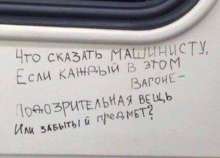 Что сказать машинисту,
Если каждый в этом
вагоне–
Подозрительная вещь
Или забытый предмет?